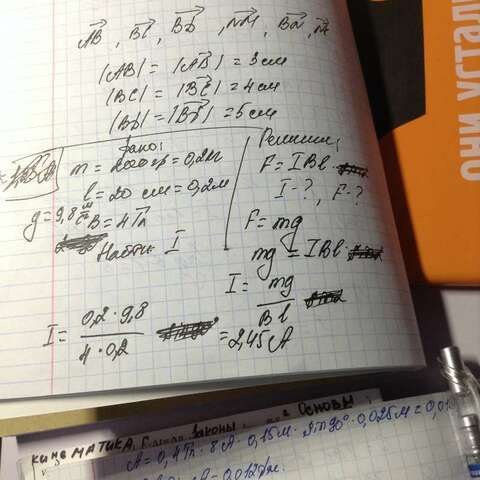 AB , BC , BD , NM , BN , N
|AB| = |AB| = 3 см
|BC| = |BC| = 4 см
|BD| = |BD| = 5 см
Дано:
m = 200гр = 0,2кг
l = 20 см = 0,2м
g = 9,8 м/с² B = 4 Тл
Найти I
Решение:
F = IBl
I - ? , F - ?
F = mg
mg = IBl
I = mg / Bl
I = 0,2 · 9,8 / 4 · 0,2 = 2,45 А
кинематика, законы, основы
A = 0,4Тл · 8А · 0,15м · sin90° · 0,025м = 0,01
A = 0,012Дж.